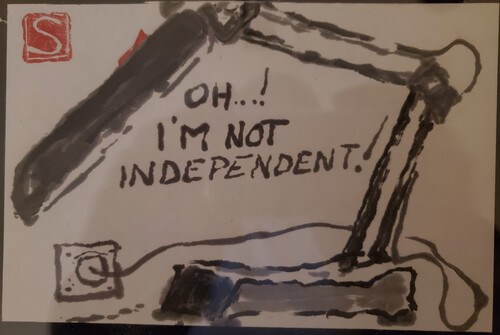 S
OH...!
I'M NOT
INDEPENDENT.!